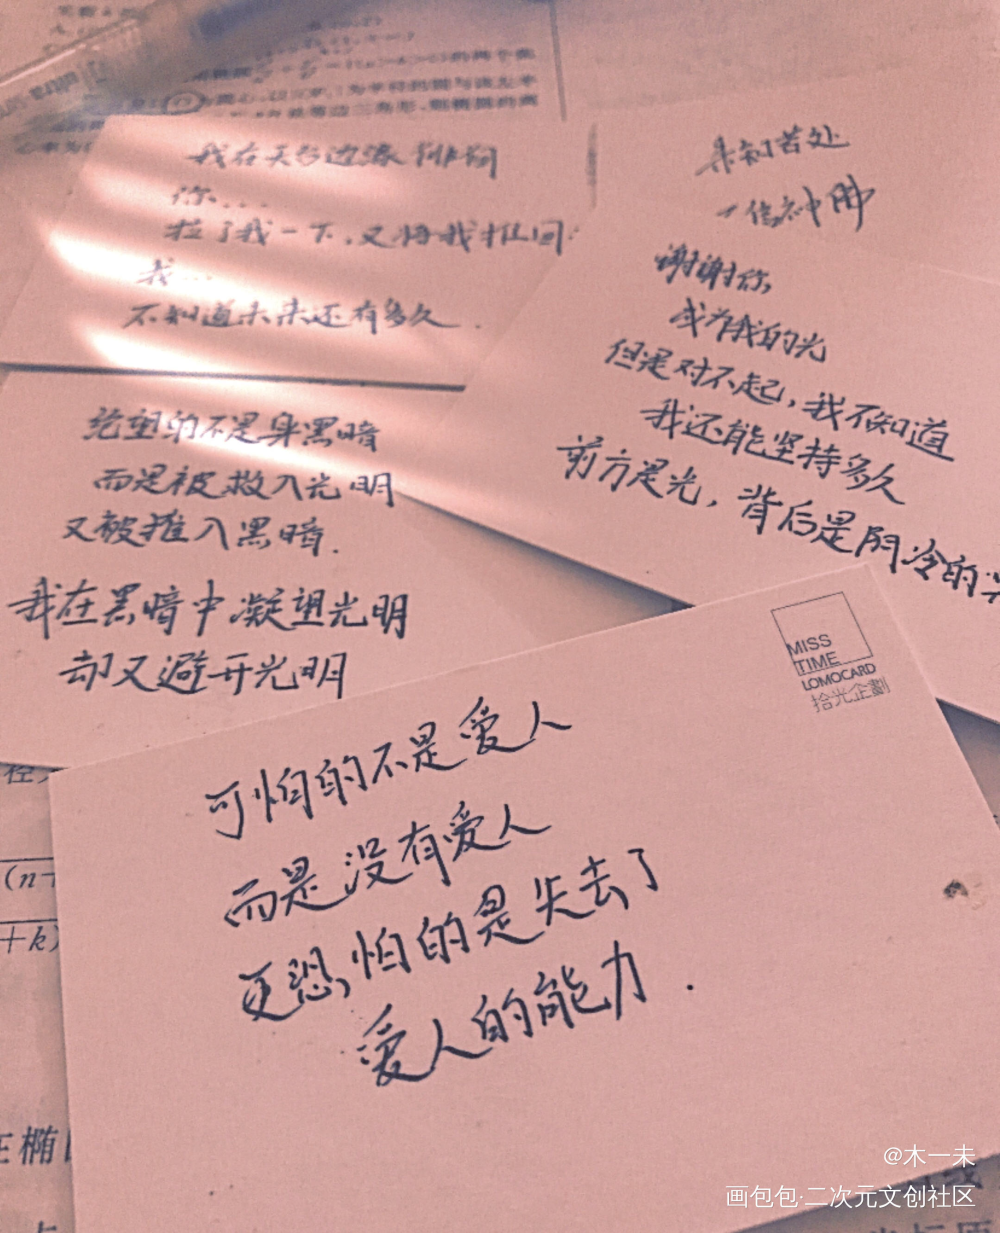 我在天与边缘徘徊
你...
拉了我一下,又将我推回
我...
不知道未来还有多久.
未知苦处
不信神佛
谢谢你,
成为我的光
但是对不起,我不知道
我还能坚持多久
前方是光,背后是阴冷的
绝望的不是身黑暗
而是被救入光明
又被推入黑暗.
我在黑暗中凝望光明
却又避开光明
MISS
TIME
LOMOCARD
拾光企劃
可怕的不是爱人
而是没有爱人
更恐怕的是失去了
爱人的能力.
(n
+k)
@木一未
画包包·二次元文创社区